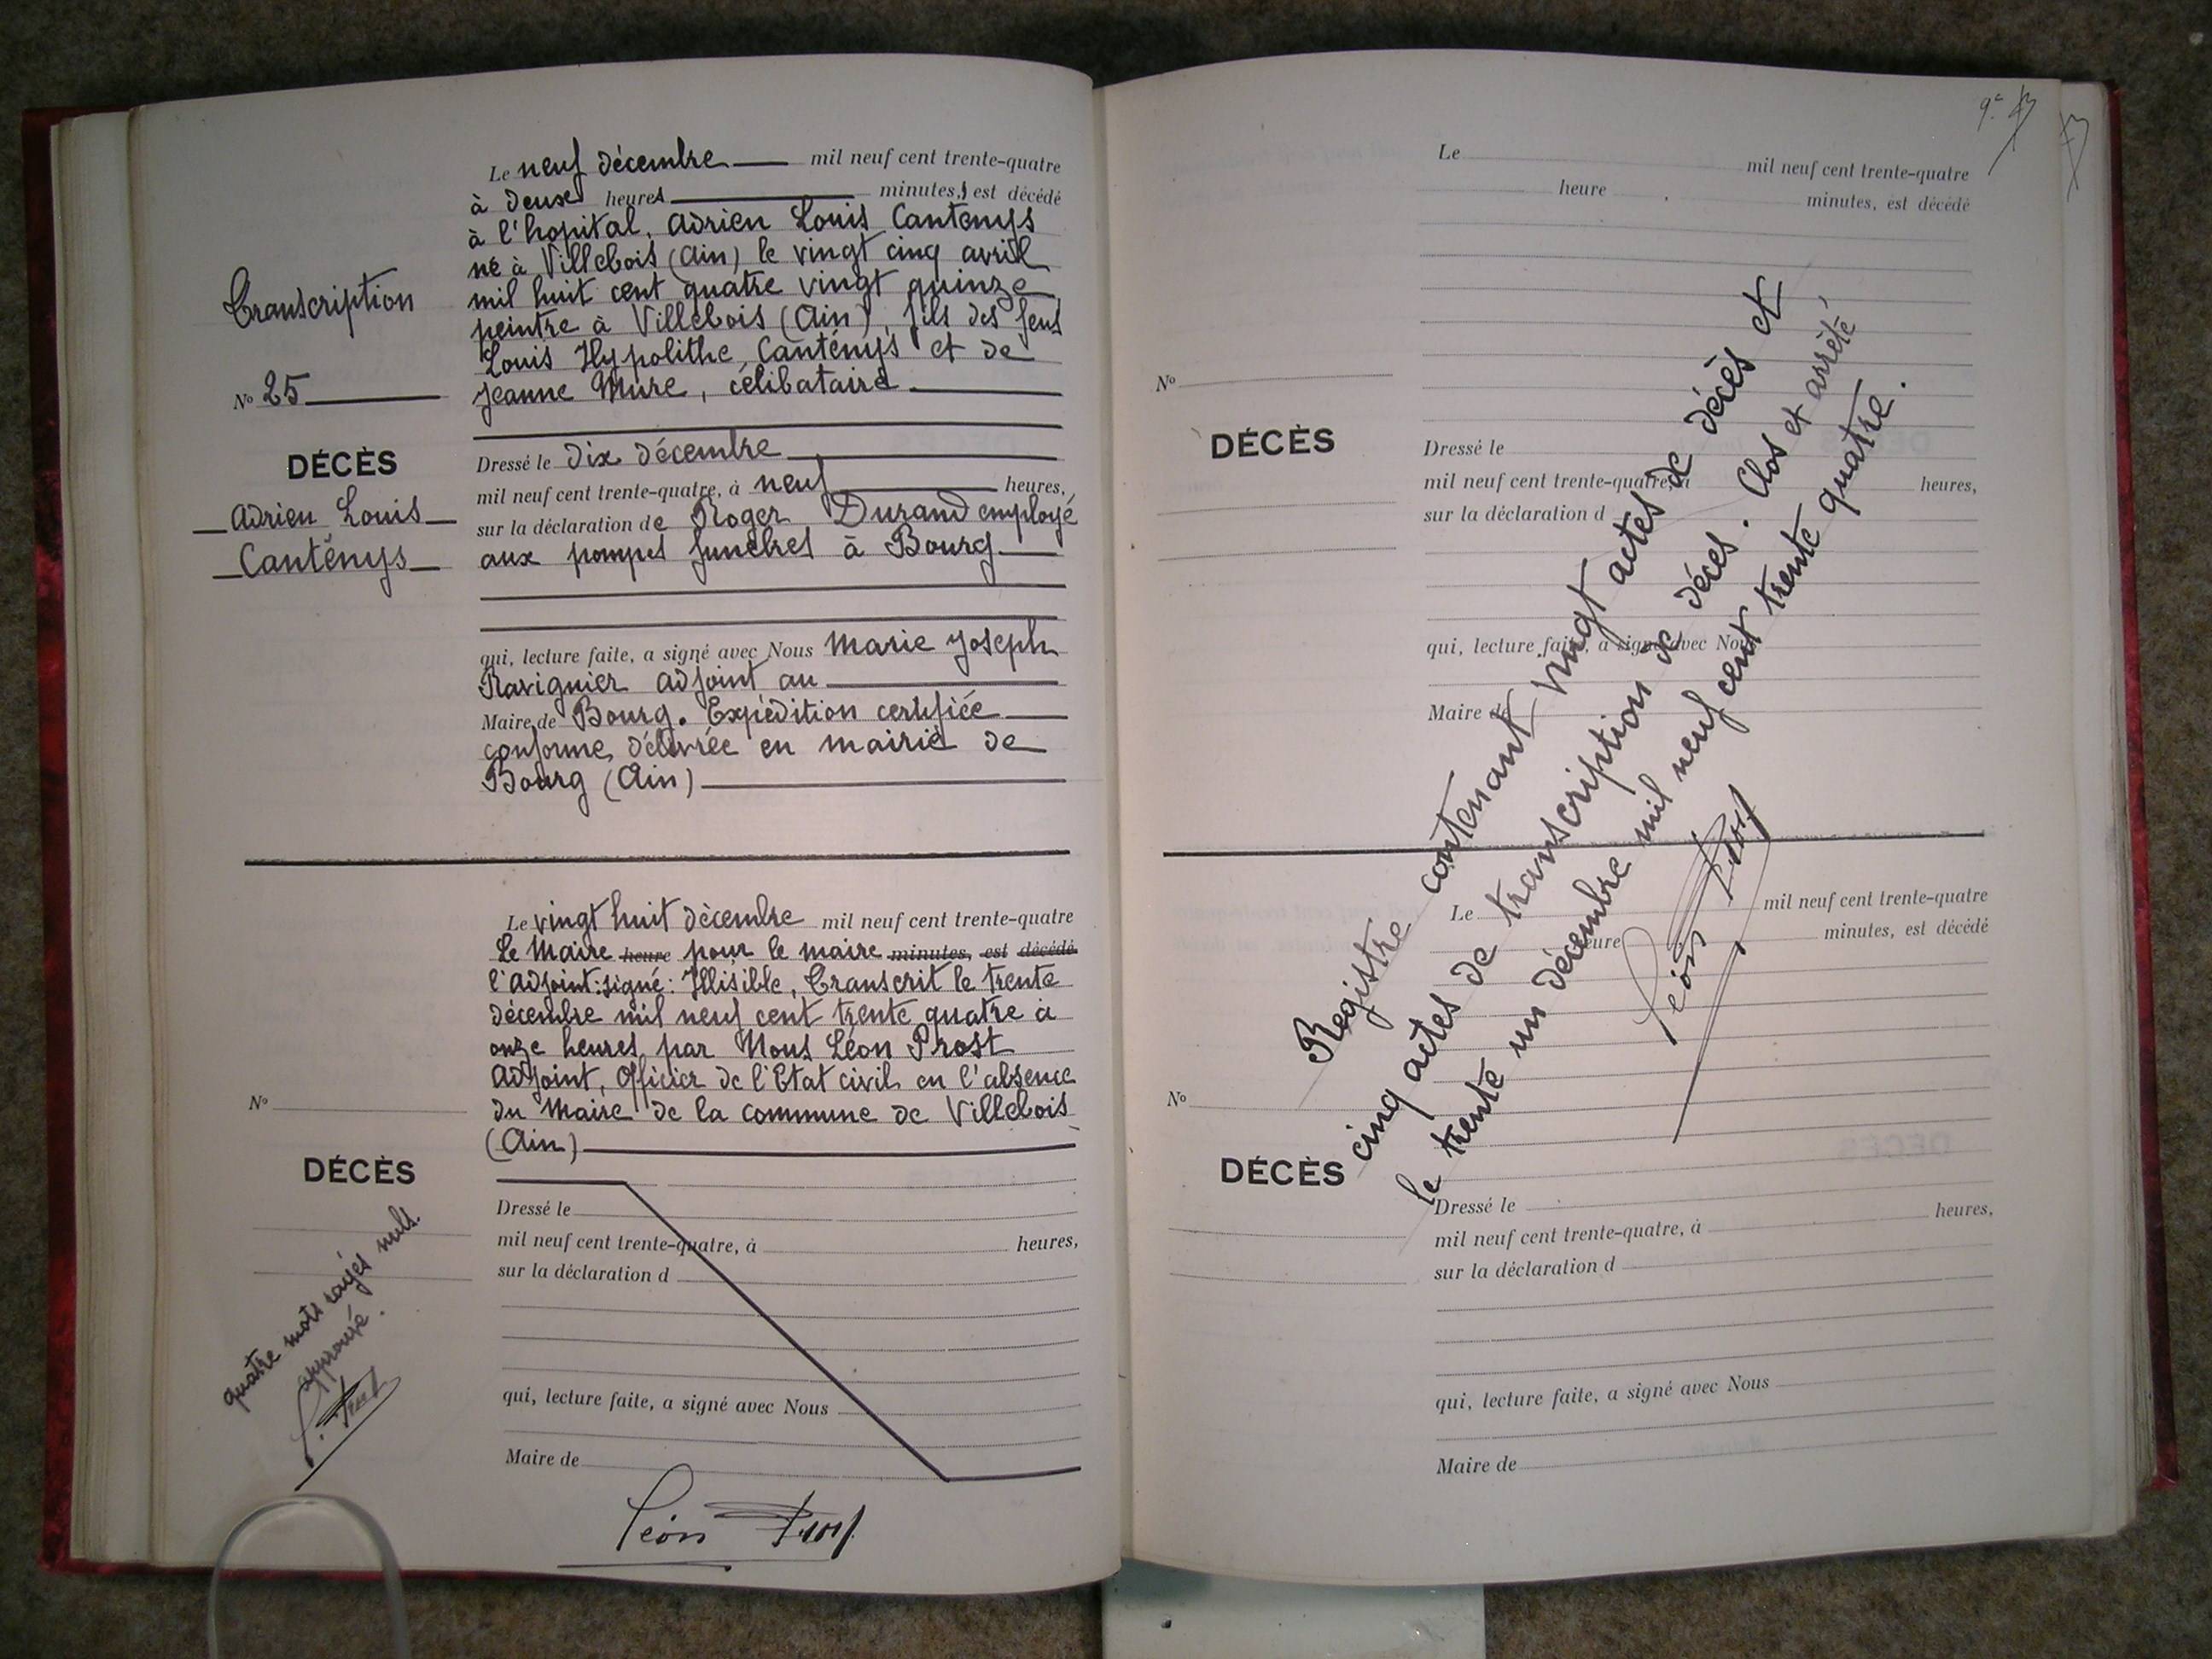 Transcription
N° 25
DÉCÈS
Adrien Louis
Canténys
Le neuf décembre mil neuf cent trente-quatre
à deux heures minutes, est décédé
à l'hopital, Adrien Louis Canténys
né à Villebois (Ain) le vingt cinq avril
mil huit cent quatre vingt quinze
peintre à Villebois (Ain), fils des feus
Louis Hypolithe Canténys et de
Jeanne Mure, célibataire.
Dressé le dix décembre
mil neuf cent trente-quatre, à neuf heures,
sur la déclaration de Roger Durand employé
aux pompes funèbres à Bourg
qui, lecture faite, a signé avec Nous Marie Joseph
Ravignier adjoint au
Maire de Bourg. Expédition certifiée
conforme, délivrée en mairie de
Bourg (Ain)
Le vingt huit décembre mil neuf cent trente-quatre
Le Maire heure pour le maire minutes, est décédé
l'Adjoint: signé: Illisible, Transcrit le trente
décembre mil neuf cent trente quatre à
onze heures, par Nous Léon Prost
Adjoint, Officier de l'Etat civil en l'absence
du Maire de la commune de Villebois
(Ain)
N°
DÉCÈS
quatre mots rayés nuls.
approuvé.
Dressé le
mil neuf cent trente-quatre, à heures,
sur la déclaration d
qui, lecture faite, a signé avec Nous
Maire de
Léon Prost
Le mil neuf cent trente-quatre
heure minutes, est décédé
N°
DÉCÈS
Dressé le
mil neuf cent trente-quatre, à heures,
sur la déclaration d
qui, lecture faite, a signé avec Nous
Maire de
Registre contenant vingt actes de décès et
cinq actes de transcription de décès. Clos et arrêté
le trente un décembre mil neuf cent trente quatre.
Léon Prost
Le mil neuf cent trente-quatre
heure minutes, est décédé
N°
DÉCÈS
Dressé le
mil neuf cent trente-quatre, à heures,
sur la déclaration d
qui, lecture faite, a signé avec Nous
Maire de